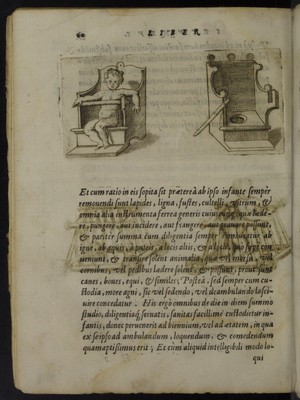 60 LIBER
Et cum ratio in eis sopita sit præterea ab ipso infante semper
removendi sunt lapides, ligna, fustes, cultelli, vitrum, &
omnia alia instrumenta ferrea generis cuiuscunque quæ læde-
re, pungere, aut incidere, aut frangere possunt,
& pariter summa cum diligentia semper
igne, ab aquis, à puteis, à locis altis, &
& transire solent animalia, quæ vel morsu, vel
cornibus, vel pedibus lædere solent, & possunt, sicut sunt
canes, boves, equi, & similes; Postea, sed semper cum cu-
stodia, more agni, sic vel sedendo, vel deambulando lasci-
uire concedatur. His ergo omnibus de die in diem summo
studio, diligentiaq; seruatis, sanitas facillimè custodietur in-
fantis, donec peruenerit ad biennium, vel ad ætatem, in qua
ex se ipso ad ambulandum, loquendum, & comedendum
quamaptissimus erit; Et cum aliquid intelligibili modo lo-
qui